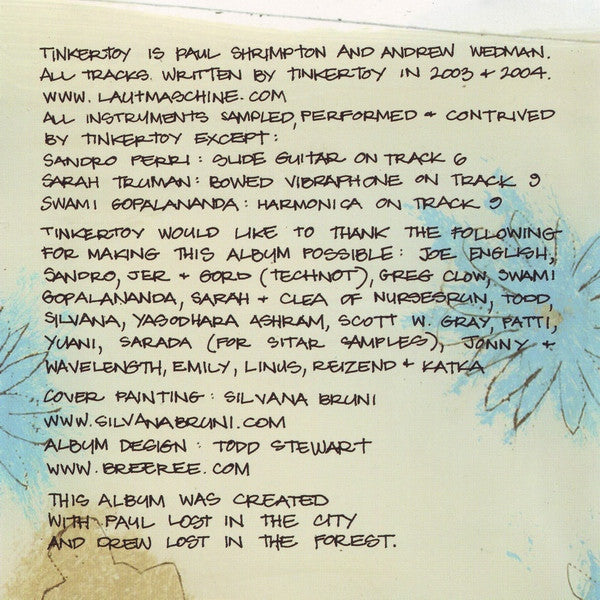 TINKERTOY IS PAUL SHRIMPTON AND ANDREW WEDMAN.
ALL TRACKS WRITTEN BY TINKERTOY IN 2003 + 2004.
WWW.LAUTMASCHINE.COM
ALL INSTRUMENTS SAMPLED, PERFORMED + CONTRIVED
BY TINKERTOY EXCEPT:
SANDRO PERRI: SLIDE GUITAR ON TRACK 6
SARAH TRUMAN: BOWED VIBRAPHONE ON TRACK 9
SWAMI GOPALANANDA: HARMONICA ON TRACK 9
TINKERTOY WOULD LIKE TO THANK THE FOLLOWING
FOR MAKING THIS ALBUM POSSIBLE: JOE ENGLISH,
SANDRO, JER + GORD (TECHNOT), GREG CLOW, SWAMI
GOPALANANDA, SARAH + CLEA OF NURSESRUN, TODD,
SILVANA, YASODHARA ASHRAM, SCOTT W. GRAY, PATTI,
YUANI, SARADA (FOR SITAR SAMPLES), JONNY +
WAVELENGTH, EMILY, LINUS, REIZEND + KATKA
COVER PAINTING: SILVANA BRUNI
WWW.SILVANABRUNI.COM
ALBUM DESIGN: TODD STEWART
WWW.BREEREE.COM
THIS ALBUM WAS CREATED
WITH PAUL LOST IN THE CITY
AND DREW LOST IN THE FOREST.